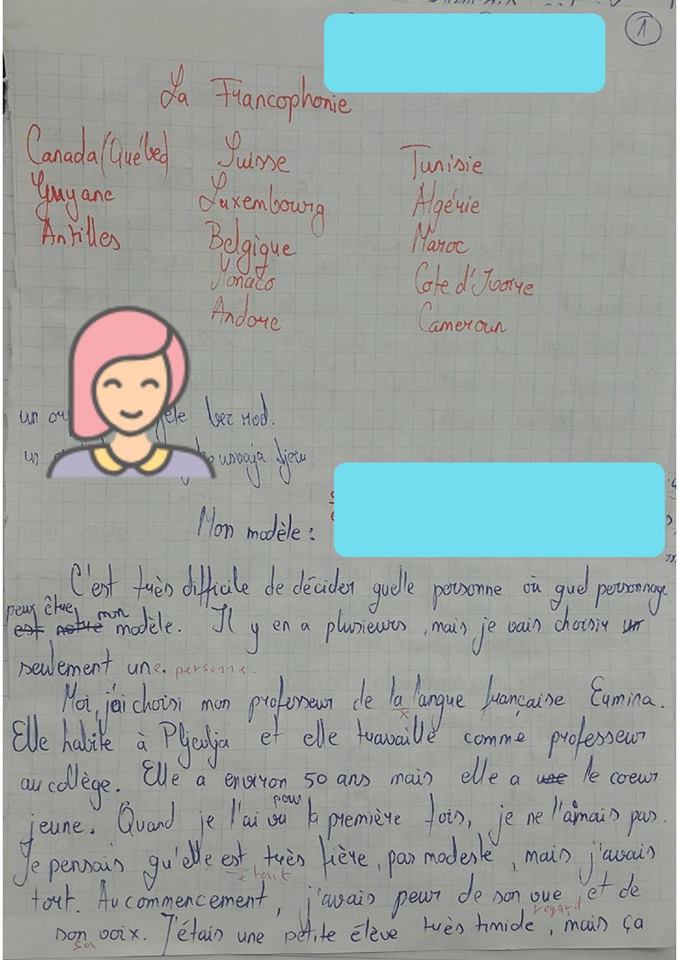 1
La Francophonie
Canada (Québec) Suisse Tunisie
Guyane Luxembourg Algérie
Antilles Belgique Maroc
Monaco Cote d'Ivoire
Andore Cameroun
un
un
Mon modèle :
C'est très difficile de décider quelle personne où quel personnage
peux être mon
est notre modèle. Il y en a plusieurs, mais je vais choisir un
seulement une. personne.
Moi, j'ai choisi mon professeur de la langue française Eumina.
Elle habite à Pljevlja et elle travaille comme professeur
au collège. Elle a environ 50 ans mais elle a une le coeur
pour
jeune. Quand je l'ai vu la première fois, je ne l'aimais pas.
Je pensais qu'elle est très fière, pas modeste, mais j'avais
était
tort. Au commencement, j'avais peur de son vue et de
regard
son voix. J'étais une petite élève très timide, mais ça
sa